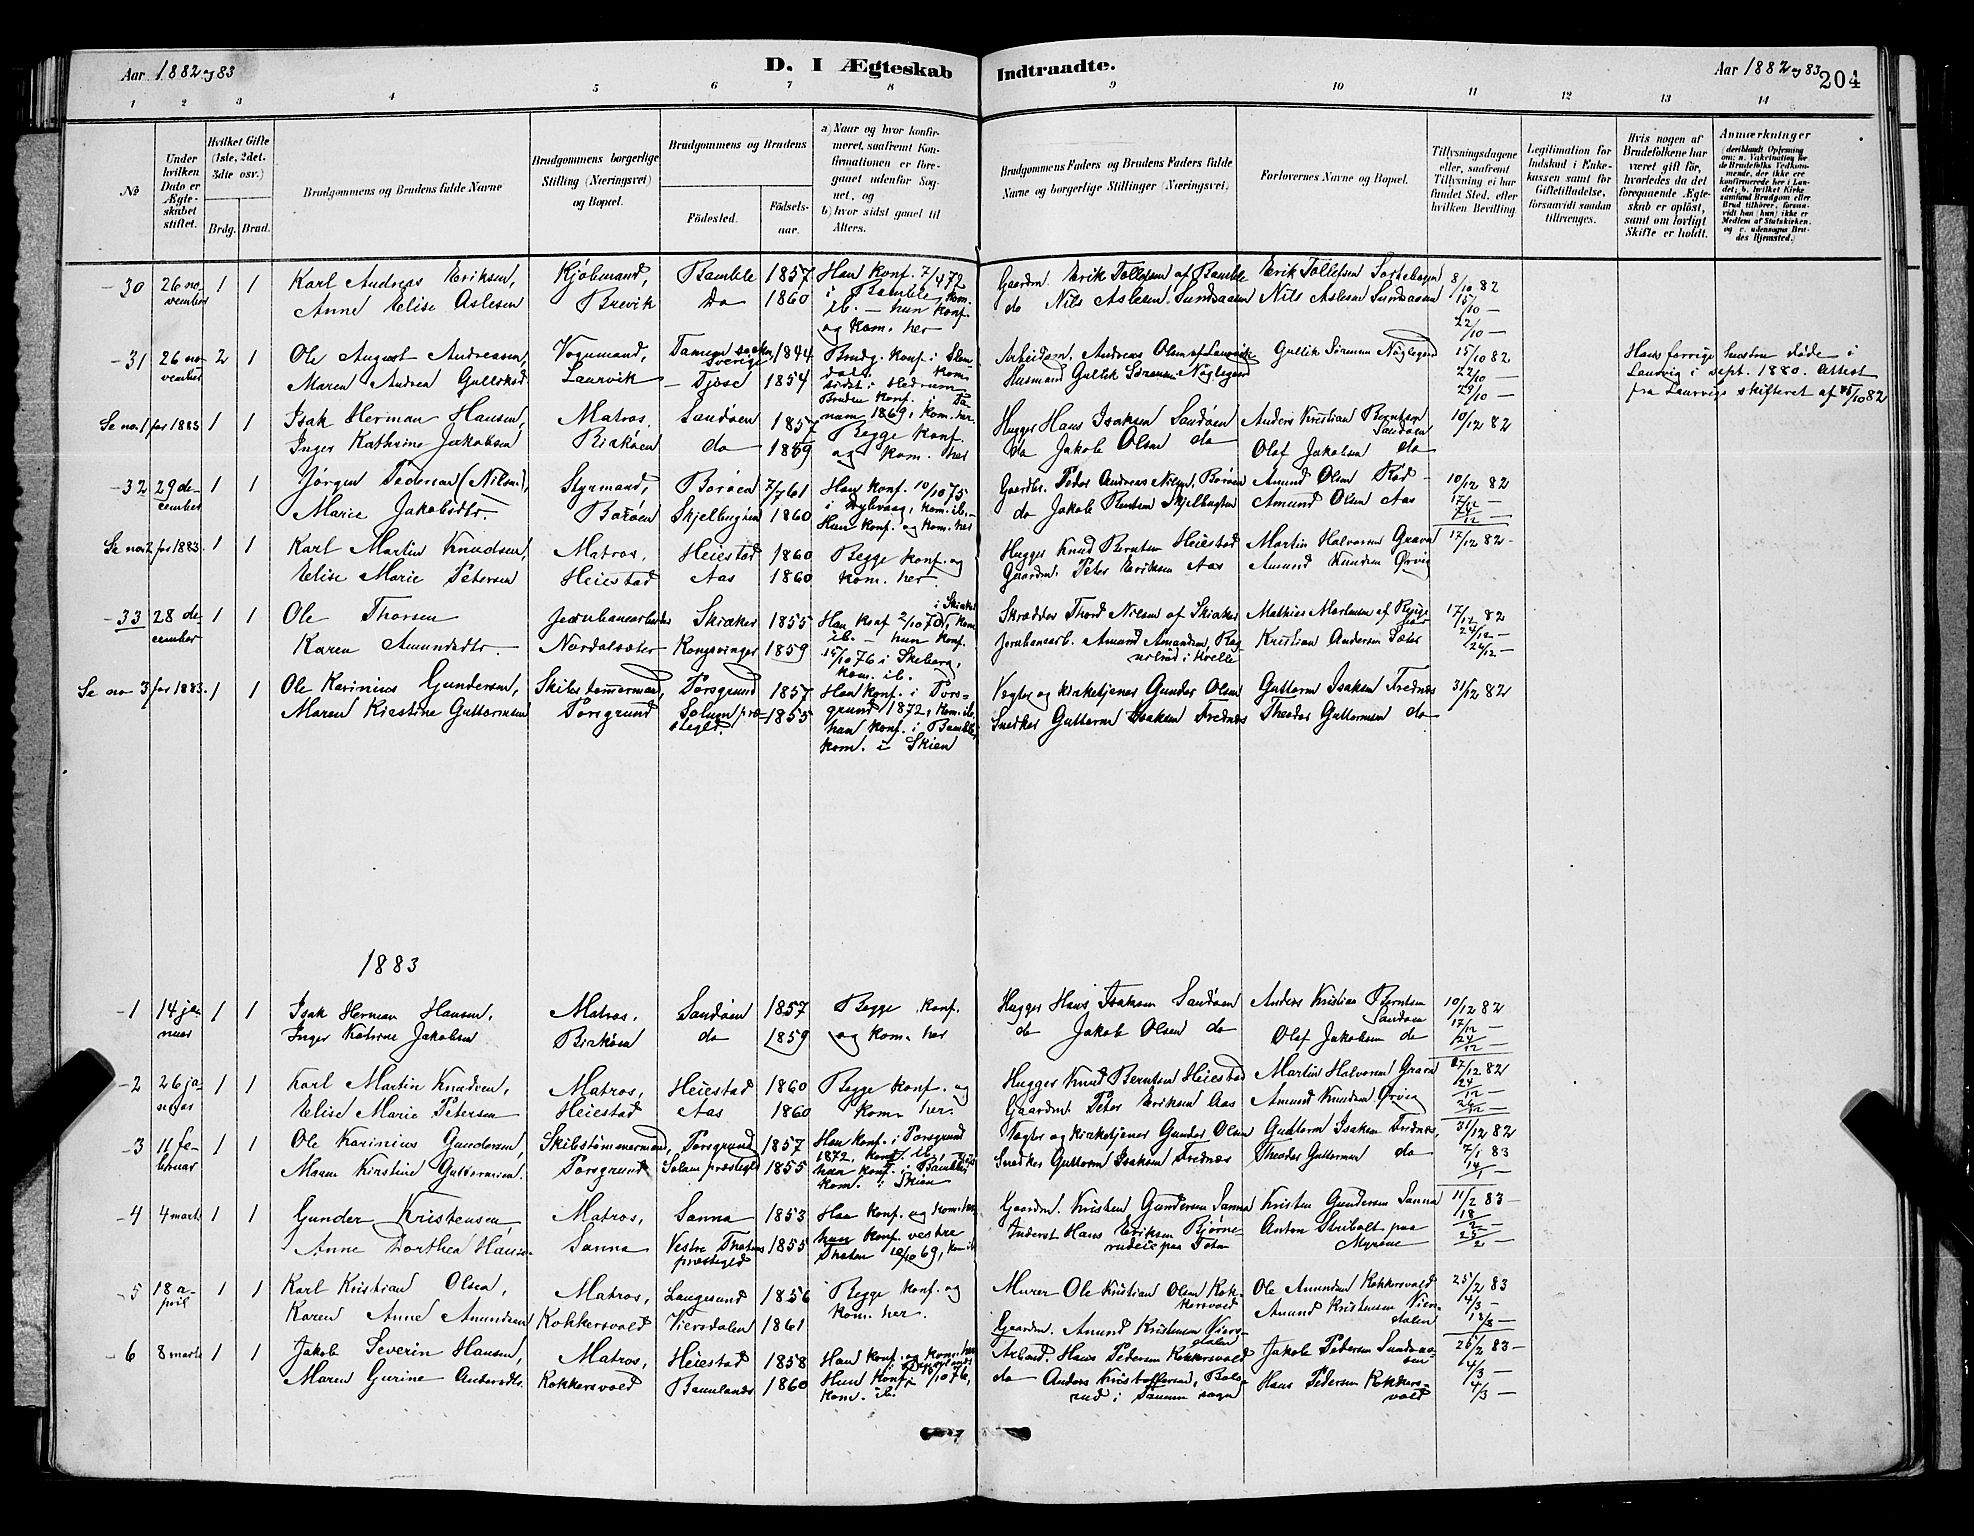 Aar 1882 og 83
D. I Ægteskab Indtraadte.
Aar 1882 og 83
204
1 2 3 4 5 6 7 8 9 10 11 12 13 14
No
Under hvilken Dato er Ægteskabet stiftet.
Hvilket Gifte (1ste, 2det, 3die osv.)
Brdg. Brud.
Brudgommens og Brudens fulde Navne
Brudgommens borgerlige Stilling (Næringsvei) og Bopæl.
Brudgommens og Brudens
Födested.
Födsels-aar.
a) Naar og hvor konfirmeret, saafremt Konfirmationen er foregaaet udenfor Sognet, og
b) hvor sidst gaaet til Alters.
Brudgommens Faders og Brudens Faders fulde Navne og borgerlige Stillinger (Næringsvei)
Forlovernes Navne og Bopæl.
Tillysningsdagene eller, saafremt Tillysning ei har fundet Sted, efter hvilken Bevilling.
Legitimation for Indskud i Enkekassen samt for Giftetilladelse, forsaavidt saadan tiltrænges.
Hvis nogen af Brudefolkene har været gift för, hvorledes da det foregaaende Ægteskab er oplöst, samt om lovligt Skifte er holdt.
Anmærkninger
30 26 november 1 1 Karl Andreas Eriksen, Kjöbmand, Bamble 1857 Han konf. 7/4 72 Gaardm. Erik Tollefsen af Bamble Erik Tollefsen 8/10 82
Anne Elise Aslesen Brevik do 1860 i Bamble, kom. ib. – hun konf. og kom. her do Nils Aslesen Sundaasen Nils Aslesen Sundaasen 15/10 – 22/10 –
31 26 november 2 1 Ole August Andreasen, Vognmand, Sverige 1844 Brudg. konf. i Arbeidsm. Andreas Olsen af Laurvik Gullik Sörensen Nöglegaard 15/10 82 Hans forrige hustru döde i
Maren Andrea Gulliksd. Laurvik Tjöse 1854 sidst i Hedrum Husmand Gullik Sörensen Nöglegaard 22/10 – 29/10 – Laurvig i sept. 1880. Attest
Bruden konf. i 1869, kom. her fra Laurvigs skifteret af 10 82
Se no. 1 for 1883 1 1 Isak Herman Hansen, Matros, Sandöen 1857 Begge konf. Hugger Hans Isaksen Sandöen Anders Kristian Berntsen Sandöen 10/12 82
Inger Kathrine Jakobsen Birköen do 1859 og kom. her do Jakob Olsen do Olaf Jakobsen do
32 29 december 1 1 Jörgen Pedersen (Nilsen), Styrmand, Boröen 7/7 61 Han konf. 10/10 75 Gaardbr. Peder Andreas Nilsen, Boröen Amund Olsen Röd 10/12 82
Marie Jakobsdtr. Boröen Skjelbugten 1860 i Dybvaag, kom. ib. – Hun konf. og kom. her do Jakob Bentsen Skjelbugten Amund Olsen Aas 17/12 –
Se no. 2 for 1883. 1 1 Karl Martin Knudsen, Matros, Heiestad 1860 Begge konf. og Hugger Knud Berntsen Heiestad Martin Halvorsen Grava 17/12 82
Elise Marie Petersen Heiestad Aas 1860 kom. her. Gaardm. Peter Eriksen Aas Amund Knudsen Örvig
33 28 december 1 1 Ole Thorsen Jernbanearbeider Skiaker 1855 Han konf 2/10 70 i Skiaker, kom ib. – hun konf. Skrædder Thord Nilsen af Skiaker Mathias Martinsen af 17/12 82
Karen Amundsdtr. Nordalsæter Kongsvinger 1859 15/10 76 i Skeberg, kom. ib. Jernbanearb. Amund Amundsen, i Hvelle Kristian Andersen Sæter 24/12 – 26/12 –
Se no 3 for 1883. 1 1 Ole Karinius Gundersen, Skibstömmermand, Porsgrund 1857 Han konf. i Pors- Vægter og kirketjener Gunder Olsen Guttorm Isaksen Frednæs 31/12 82
Maren Kirstine Guttormsen Porsgrund Solum præstegld. 1855 grund 1872, kom. ib. hun konf. i Bamble, kom. i Skien Snedker Guttorm Isaksen Frednæs Theodor Guttormsen do
1883
1 14 januar 1 1 Isak Herman Hansen, Matros, Sandöen 1857 Begge konf. Hugger Hans Isaksen Sandöen Anders Kristian Berntsen Sandöen 10/12 82
Inger Katrine Jakobsen Birköen do 1859 og kom. her do Jakob Olsen do Olaf Jakobsen do 17/12 – 24/12 –
2 26 januar 1 1 Karl Martin Knudsen, Matros, Heiestad 1860 Begge konf. og Hugger Knud Berntsen Heiestad Martin Halvorsen Grava 17/12 82
Elise Marie Petersen Heiestad Aas 1860 kom. her. Gaardm. Peter Eriksen Aas Amund Knudsen Örvig 24/12 26/12 –
3 11 februar 1 1 Ole Karinius Gundersen, Skibstömmermand, Porsgrund 1857 Han konf. i Porsgrund Vægter og kirketjener Gunder Olsen Guttorm Isaksen Frednæs, 31/12 82
Maren Kirstine Guttormsen. Porsgrund Solum præstegld 1855 1872, kom. ib. hun konf. i Bamble, kom. i Skien Snedker Guttorm Isaksen Frednæs Theodor Guttormsen do 7/1 83 14/1 –
4 4 marts 1 1 Gunder Kristensen Matros, Sanna 1853 Han konf. og kom. her Gaardm. Kristen Gundersen Sanna Kristen Gundersen Sanna 11/2 83 –
Anne Dorthea Hansen Sanna Vestre Thoten præstegld 1855 hun konf. vestre Thoten 10/10 69, kom. ib Inderst Hans Eriksen paa Toten Anton Stribolt paa Myrene 18/2 – 25/2 –
5 18 april 1 1 Karl Kristian Olsen, Matros, Langesund 1856 Begge konf. og Murer Ole Kristian Olsen Kokkersvold Ole Amundsen Kokkersvold 25/2 83
Karen Anne Amundsen Kokkersvold Viersdalen 1861 kom. her. Gaardm. Amund Kristensen Viersdalen Amund Kristensen Viersdalen 4/3 –
6 8 marts 1 1 Jakob Severin Hansen, Matros, Heiestad 1858 Han konf. og kom. her Arbeid. Hans Pedersen Kokkersvold Jakob Pedersen Sundaasen 25/2 83 –
Maren Gurine Andersdtr. Kokkersvold 1860 Hun konf. 1/10 76, kom. ib. do Anders Kristoffersen, i sogn Hans Pedersen Kokkersvold 4/3 – 4/3 –